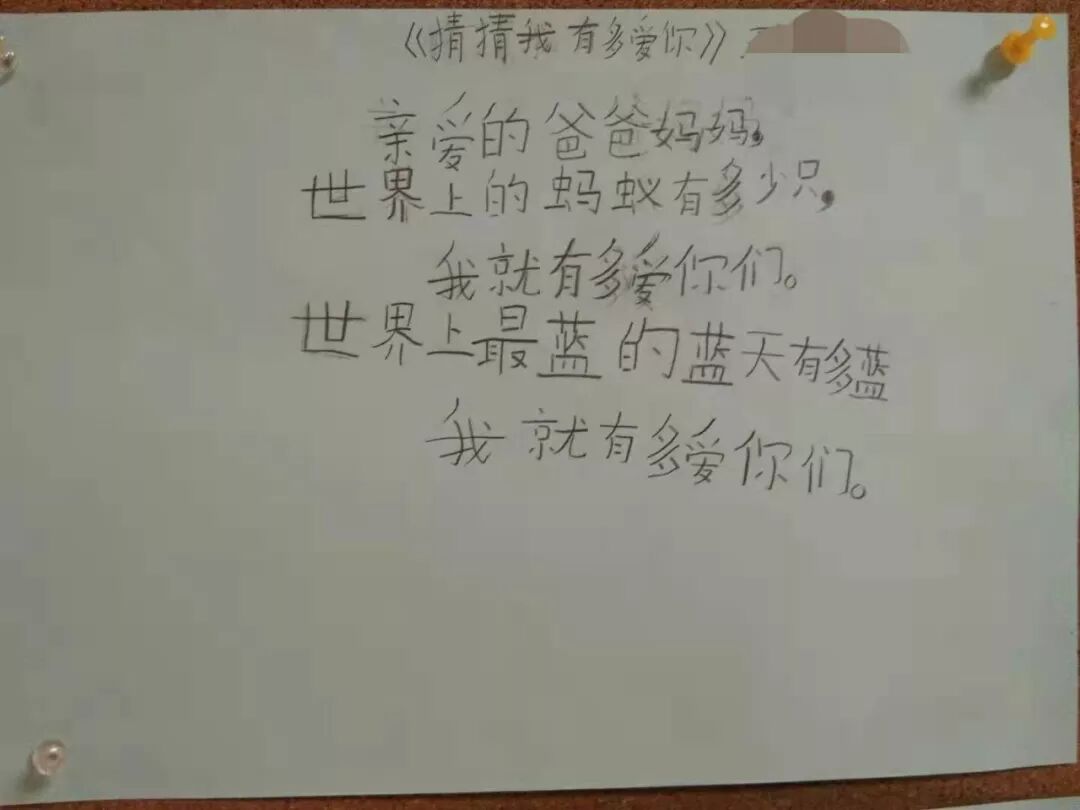 《猜猜我有多爱你》
亲爱的爸爸妈妈,
世界上的蚂蚁有多少只,
我就有多爱你们。
世界上最蓝的蓝天有多蓝
我就有多爱你们。